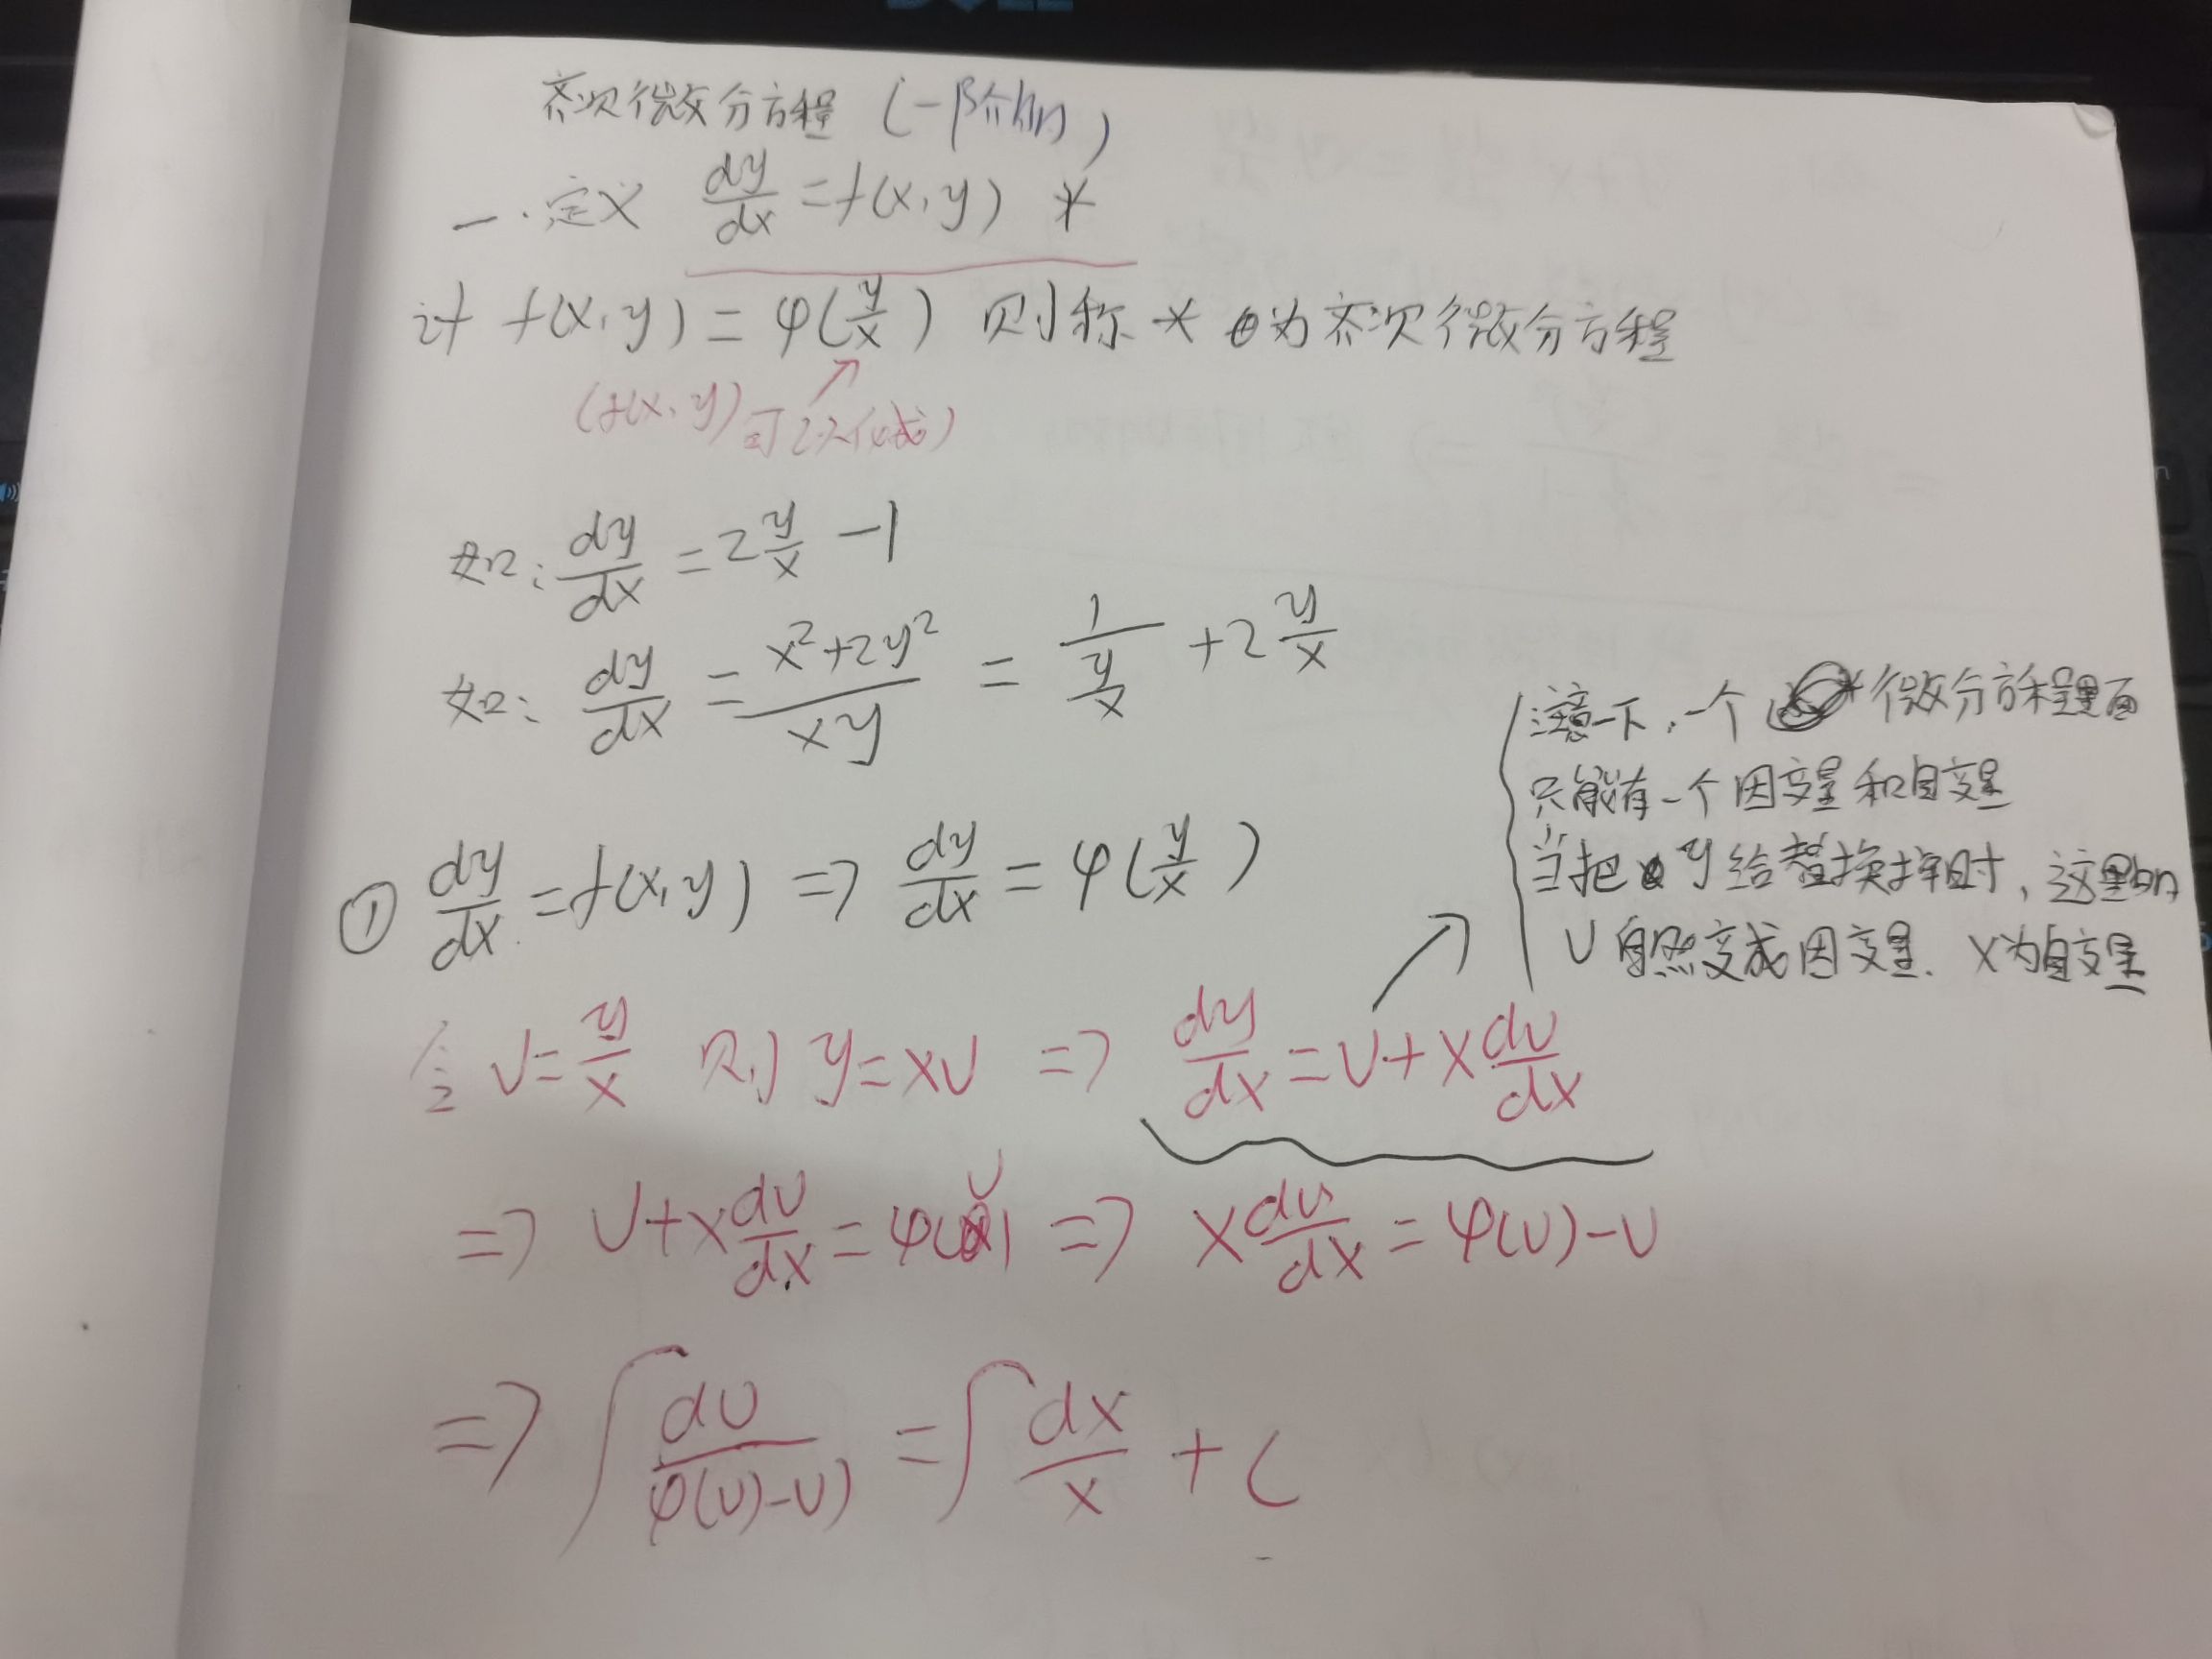 齐次微分方程 (一阶的)
一.定义 dy/dx = f(x,y) *
if f(x,y) = φ(y/x) 则称 * 为齐次微分方程
(f(x,y)可以化成)
如: dy/dx = 2 y/x - 1
如: dy/dx = (x²+2y²)/(xy) = 1/(y/x) + 2 y/x
注意一下,一个微分方程里面
只能有一个因变量和自变量
当把y给替换掉时,这里的
U自然变成因变量. X为自变量
① dy/dx = f(x,y) => dy/dx = φ(y/x)
令 U = y/x 则 y = xU => dy/dx = U + x dU/dx
=> U + x dU/dx = φ(U) => x dU/dx = φ(U) - U
=> ∫ dU/(φ(U)-U) = ∫ dx/x + C